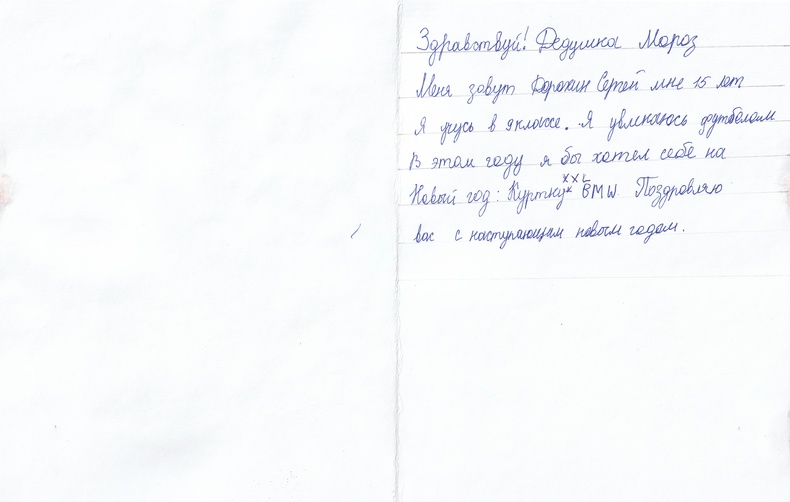 Здравствуй! Дедушка Мороз
Меня зовут Дорохин Сергей мне 15 лет
Я учусь в 9 классе. Я увлекаюсь футболом
В этом году я бы хотел себе на
Новый год: Куртку XXL BMW Поздровляю
вас с наступающим новым годом.